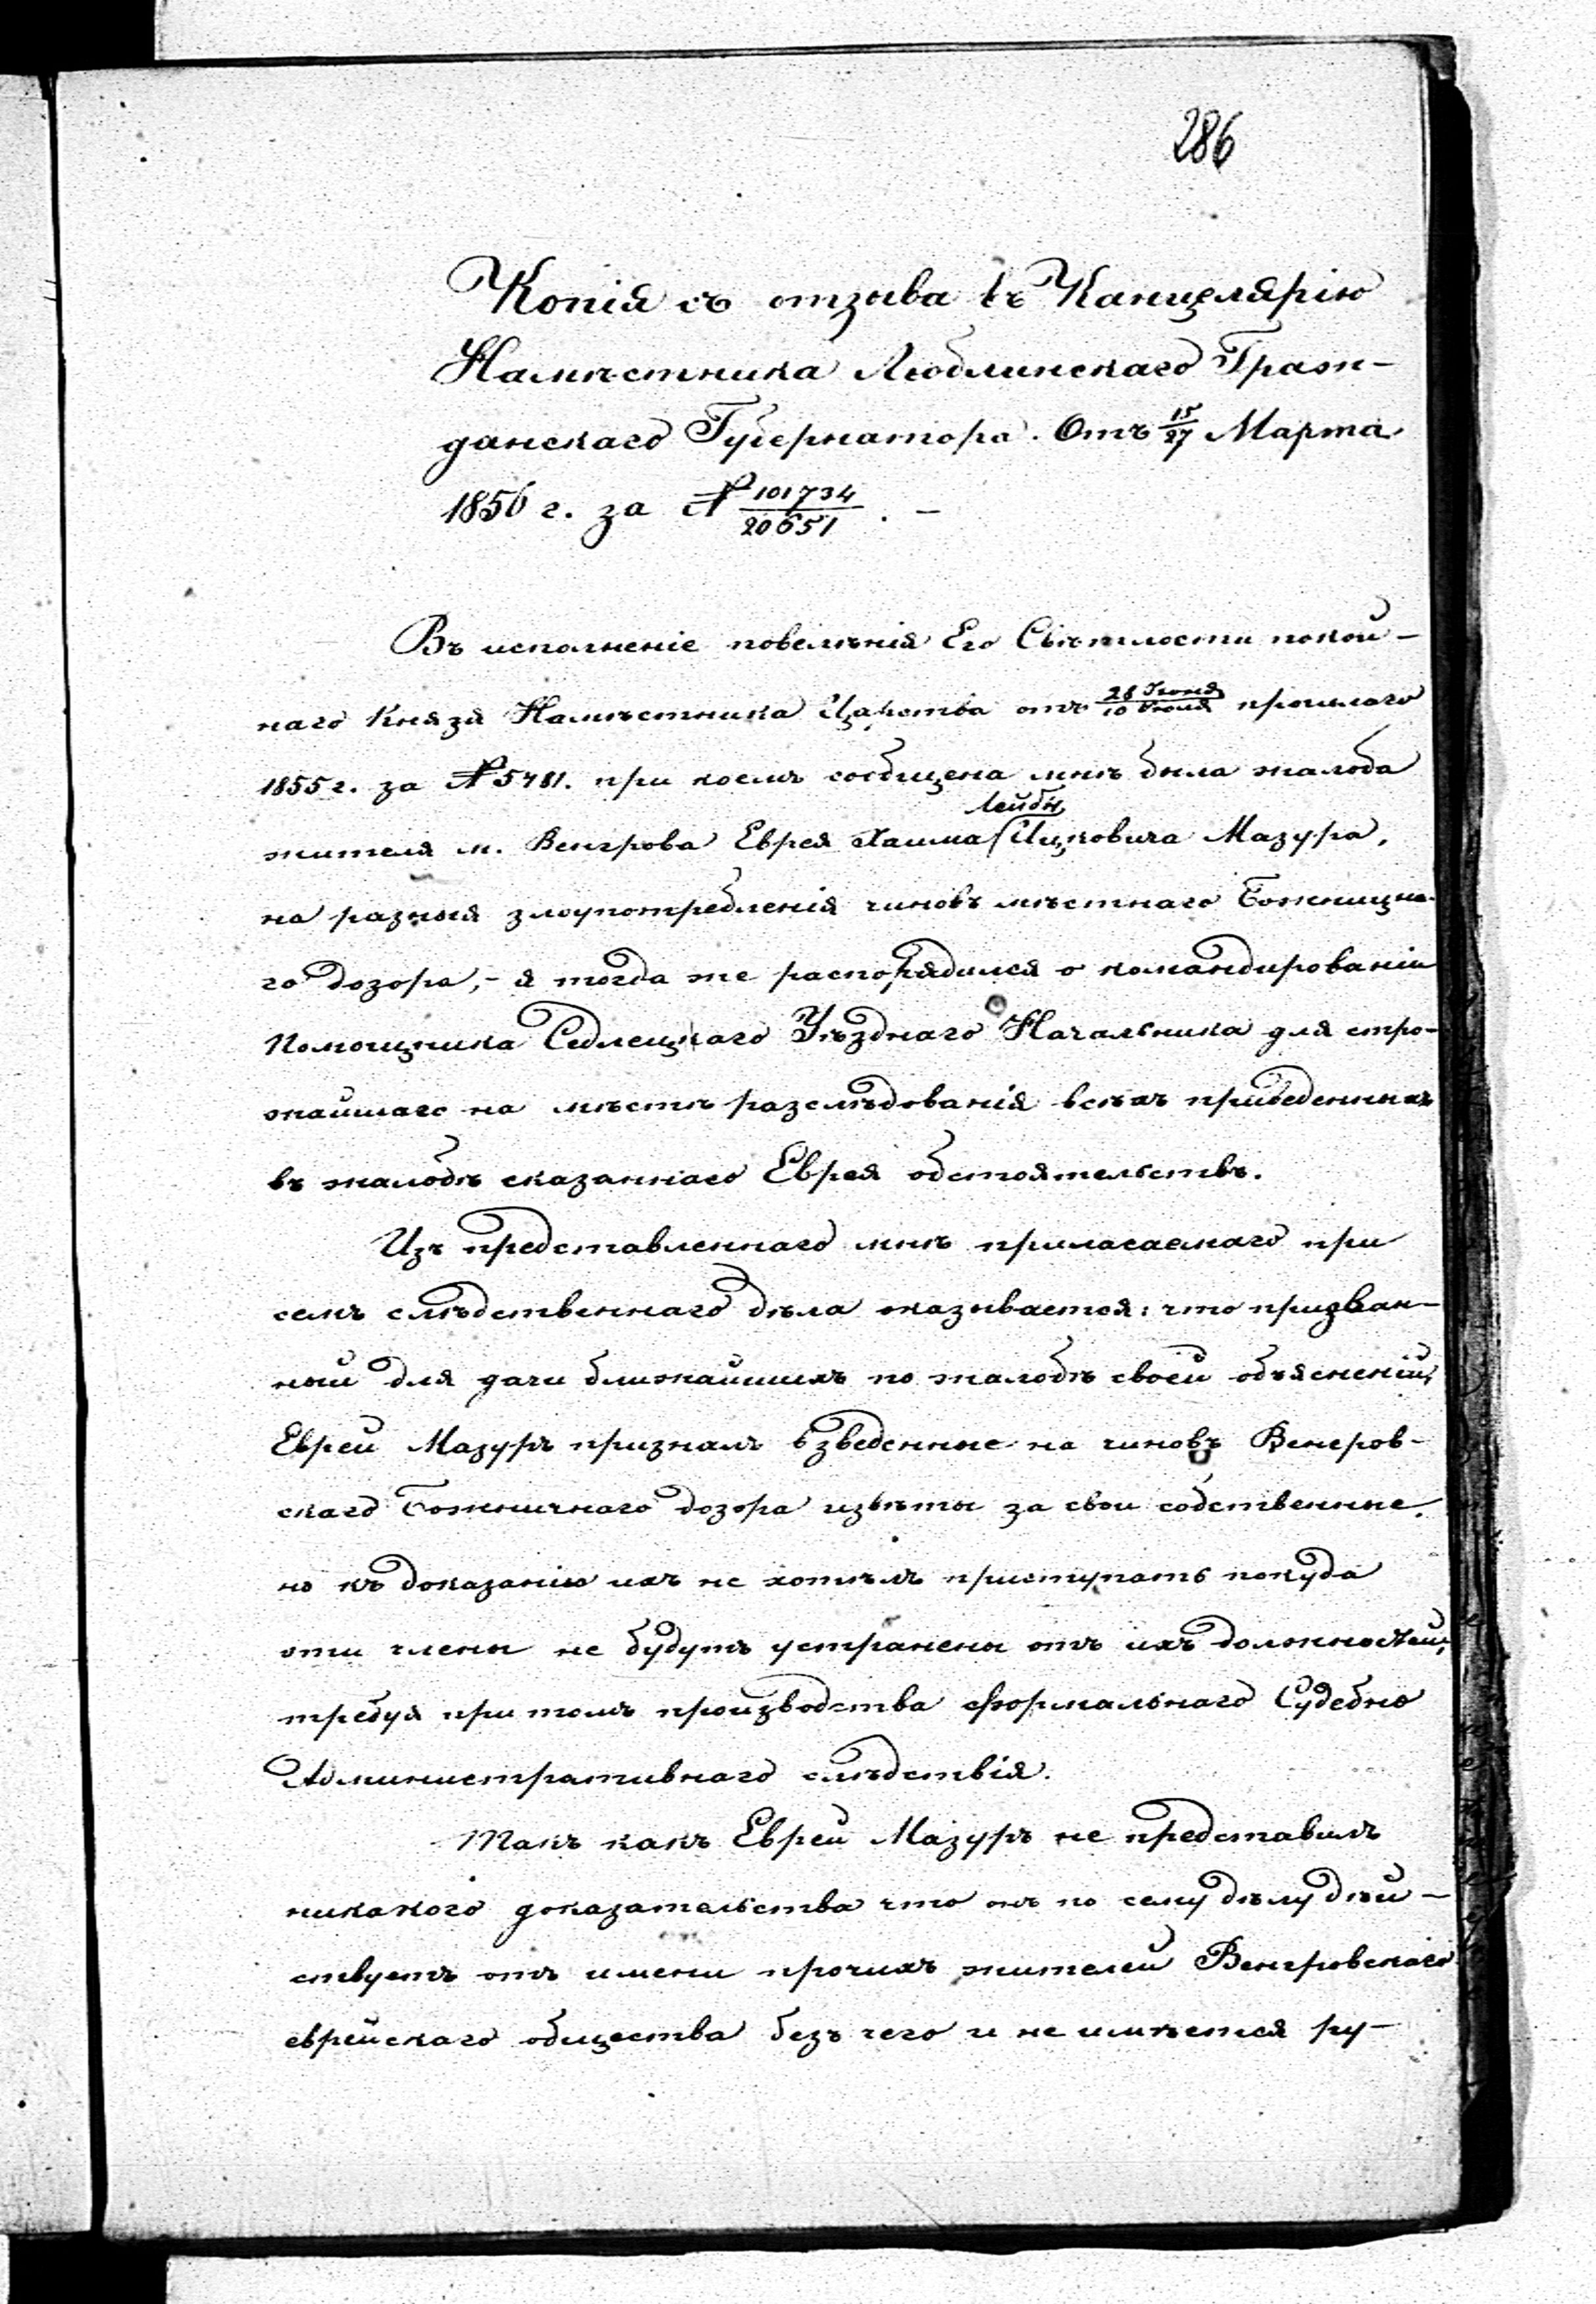 286
Копія съ отзыва въ Канцелярію
Намѣстника Люблинскаго Граж-
данскаго Губернатора. Отъ 15/27 Марта
1856 г. за № 101734/20651. –
Въ исполненіе повелѣнія Его Свѣтлости покой-
наго Князя Намѣстника Царства отъ 28 Іюня/10 Іюля прошлаго
1855 г. за № 5781. при коемъ сообщена мнѣ была жалоба
Лейбы
жителя м. Венгрова Еврея Хаима Ицковича Мазура,
на разныя злоупотребленія чиновъ мѣстнаго Божнична-
го дозора, – я тогда же распорядился о командированіи
Помощника Седлецкаго Уѣзднаго Начальника для стро-
жайшаго на мѣстѣ разслѣдованія всѣхъ приведенныхъ
въ жалобѣ сказаннаго Еврея обстоятельствъ.
Изъ представленнаго мнѣ прилагаемаго при
семъ слѣдственнаго дѣла оказывается: что призван-
ный для дачи ближайшихъ по жалобѣ своей объясненій,
Еврей Мазуръ призналъ взведенные на чиновъ Венгров-
скаго Божничнаго дозора извѣты за свои собственные,
но къ доказанію ихъ не хотѣлъ приступать покуда
эти члены не будутъ устранены отъ ихъ должностей,
требуя при томъ производства формальнаго Судебно
Административнаго слѣдствія.
Такъ какъ Еврей Мазуръ не представилъ
никакого доказательства что онъ по сему дѣлу дѣй-
ствуетъ отъ имени прочихъ жителей Венгровскаго
еврейскаго общества безъ чего и не имѣется ру-